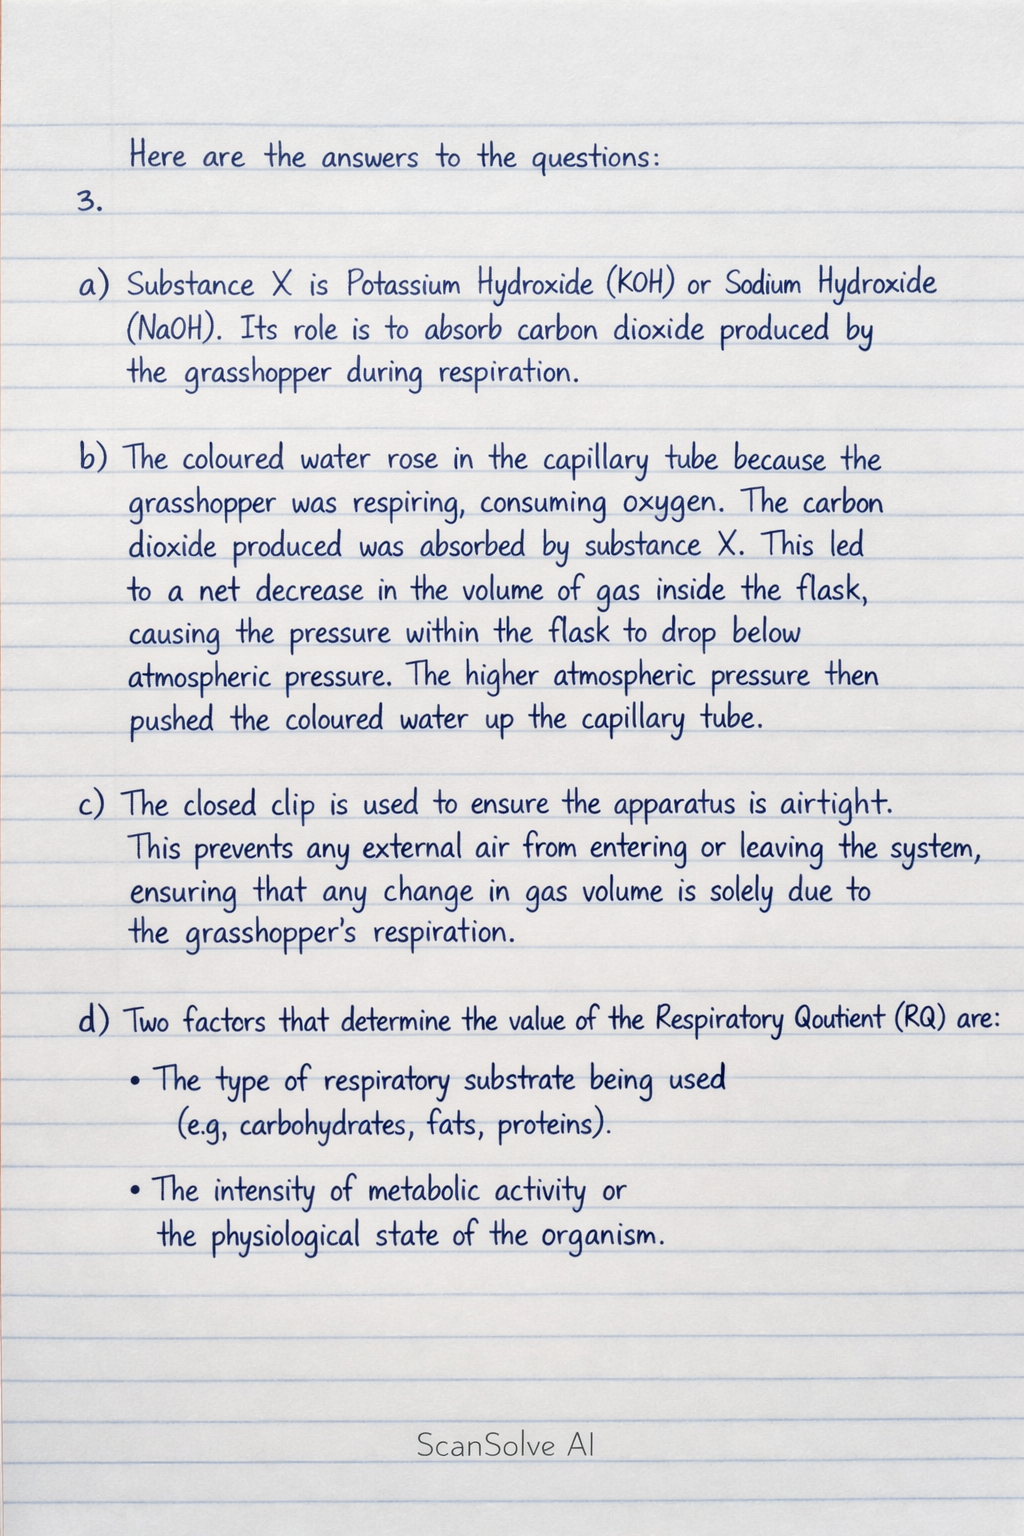 Here are the answers to the questions:
3.
a) Substance X is Potassium Hydroxide (KOH) or Sodium Hydroxide
(NaOH). Its role is to absorb carbon dioxide produced by
the grasshopper during respiration.
b) The coloured water rose in the capillary tube because the
grasshopper was respiring, consuming oxygen. The carbon
dioxide produced was absorbed by substance X. This led
to a net decrease in the volume of gas inside the flask,
causing the pressure within the flask to drop below
atmospheric pressure. The higher atmospheric pressure then
pushed the coloured water up the capillary tube.
c) The closed clip is used to ensure the apparatus is airtight.
This prevents any external air from entering or leaving the system,
ensuring that any change in gas volume is solely due to
the grasshopper's respiration.
d) Two factors that determine the value of the Respiratory Qoutient (RQ) are:
• The type of respiratory substrate being used
(e.g, carbohydrates, fats, proteins).
• The intensity of metabolic activity or
the physiological state of the organism.
ScanSolve AI